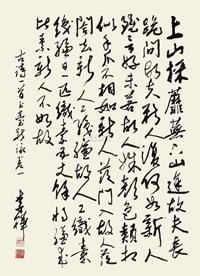 上山採蘼蕪下山逢故夫長
跪問故夫新人復何如新人
雖言好未若故人姝顏色類相
似手爪不相如新人從門入故人從
閤去新人工織縑故人工織素
織縑日一匹織素五丈餘將縑來
比素新人不如故
古詩一首玉臺新詠卷一